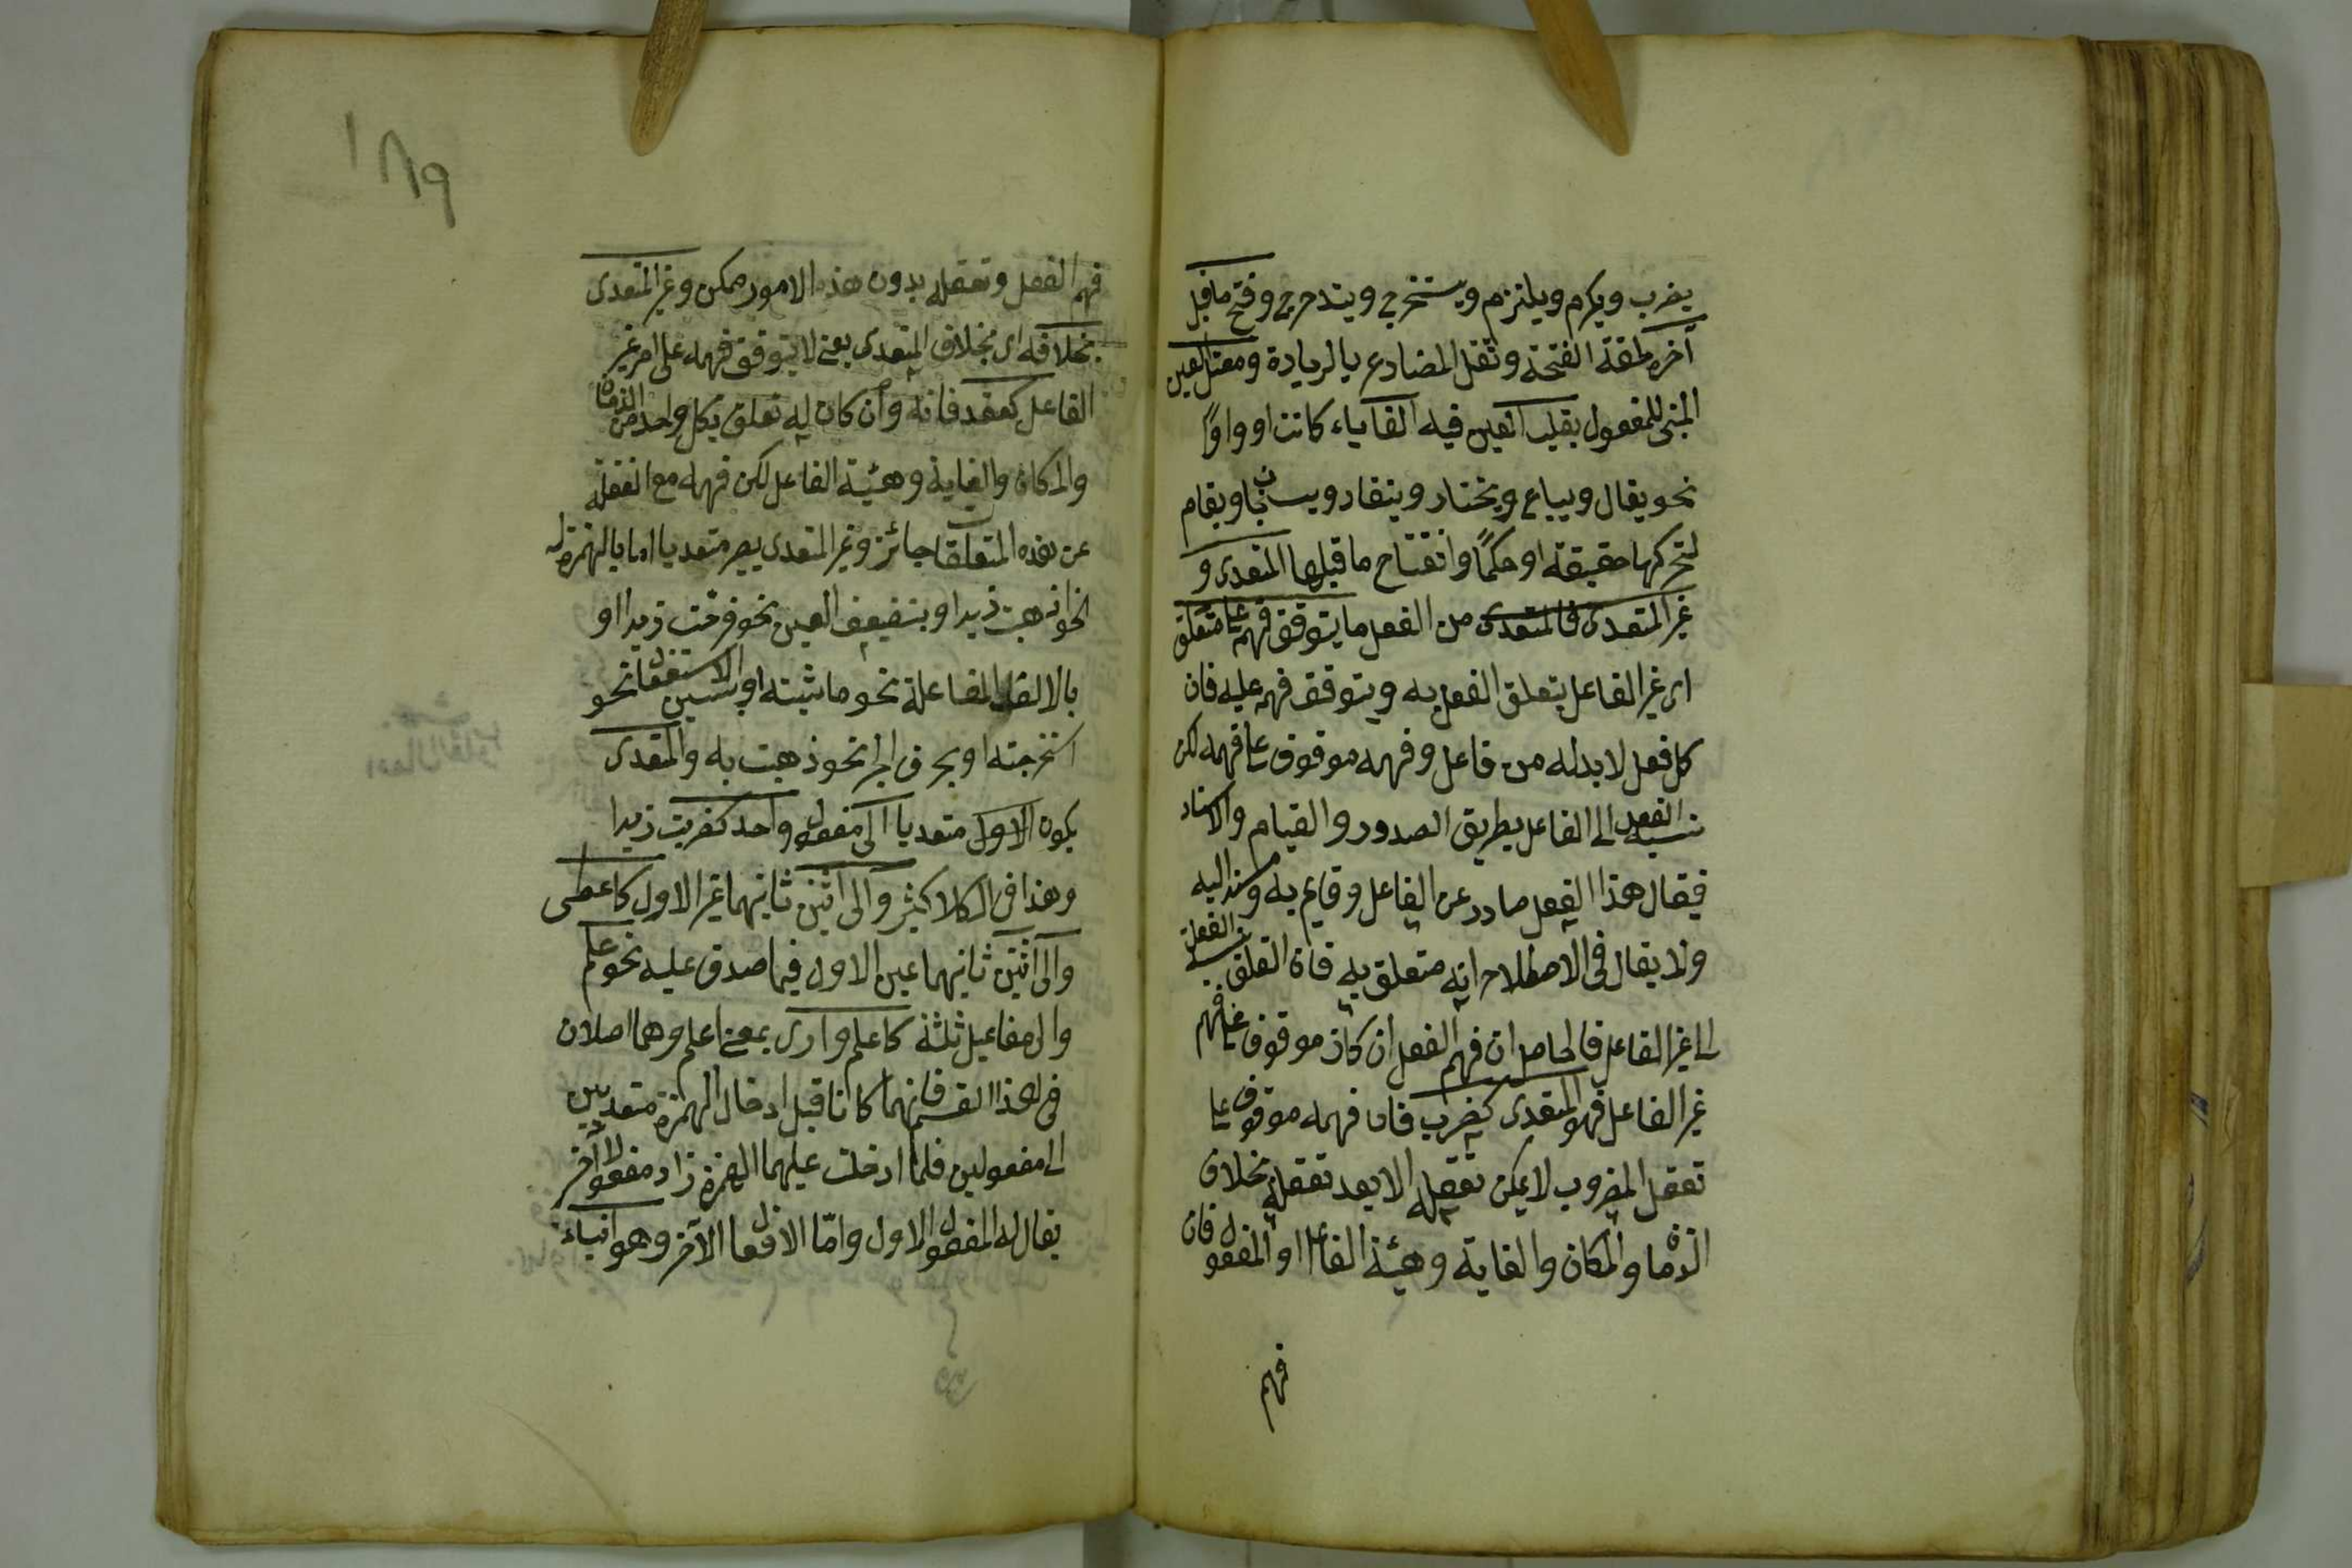 يضرب ويكرم ويلتزم ويستخرج ويتدحرج وفتح ما قبل
آخره لخفة الفتحة وثقل المضارع بالزيادة ومعتل العين
المبنى للمفعول بقلب العين فيه الفا ياء كانت او واوًا
نحو يقال ويباع ويختار وينقاد ويستجاب ويقام
لتحركها حقيقة او حكمًا وانفتاح ما قبلها المتعدى و
غير المتعدى فالمتعدى من الفعل ما يتوقف فهمه على متعلق
اى غير الفاعل يتعلق الفعل به ويتوقف فهمه عليه فان
كل فعل لا بد له من فاعل وفهمه موقوف على فهمه لكن
نسبة الفعل الى الفاعل بطريق الصدور والقيام والاسناد
فيقال هذا الفعل صادر عن الفاعل وقايم به ومسند اليه
ولا يقال فى الاصطلاح انه متعلق به فان التعلق نسبة الفعل
الى غير الفاعل فالحاصل ان فهم الفعل ان كان موقوفا على فهم
غير الفاعل فهو المتعدى كضرب فان فهمه موقوف على
تعقل المضروب لا يمكن تعقله الا بعد تعقله بخلاف
الزمان والمكان والغاية وهيئة الفاعل او المفعول فان
فهم
١٨٩
فهم الفعل وتعقله بدون هذه الامور ممكن وغير المتعدى
بخلافه اى بخلاف المتعدى يعنى لا يتوقف فهمه على امر غير
الفاعل كقعد فانه وان كان له تعلق بكل واحد من الزمان
والمكان والغاية وهيئة الفاعل لكن فهمه مع الغفلة
عن هذه المتعلقات جائز وغير المتعدى يصير متعديا اما بالهمزة
نحو اذهبت زيدا او بتضعيف العين نحو فرّحت زيدا او
بالالف المفاعلة نحو ماشيته او بسين الاستفعال نحو
استخرجته او بحرف الجر نحو ذهبت به والمتعدى
يكون الاول متعديا الى مفعول واحد كضربت زيدا
وهذا فى الكلام كثير والى اثنين ثانيهما غير الاول كاعطى
والى اثنين ثانيهما عين الاول فيما صدق عليه نحو علم
والى مفاعيل ثلثة كاعلم وارى بمعنى اعلم وهما اصلان
فى هذا القسم فانهما كانا قبل ادخال الهمزة متعديين
الى مفعولين فلما ادخلت عليهما الهمزة زاد مفعولا آخر
يقال له المفعول الاول وامّا الافعال الآخر وهو انباء